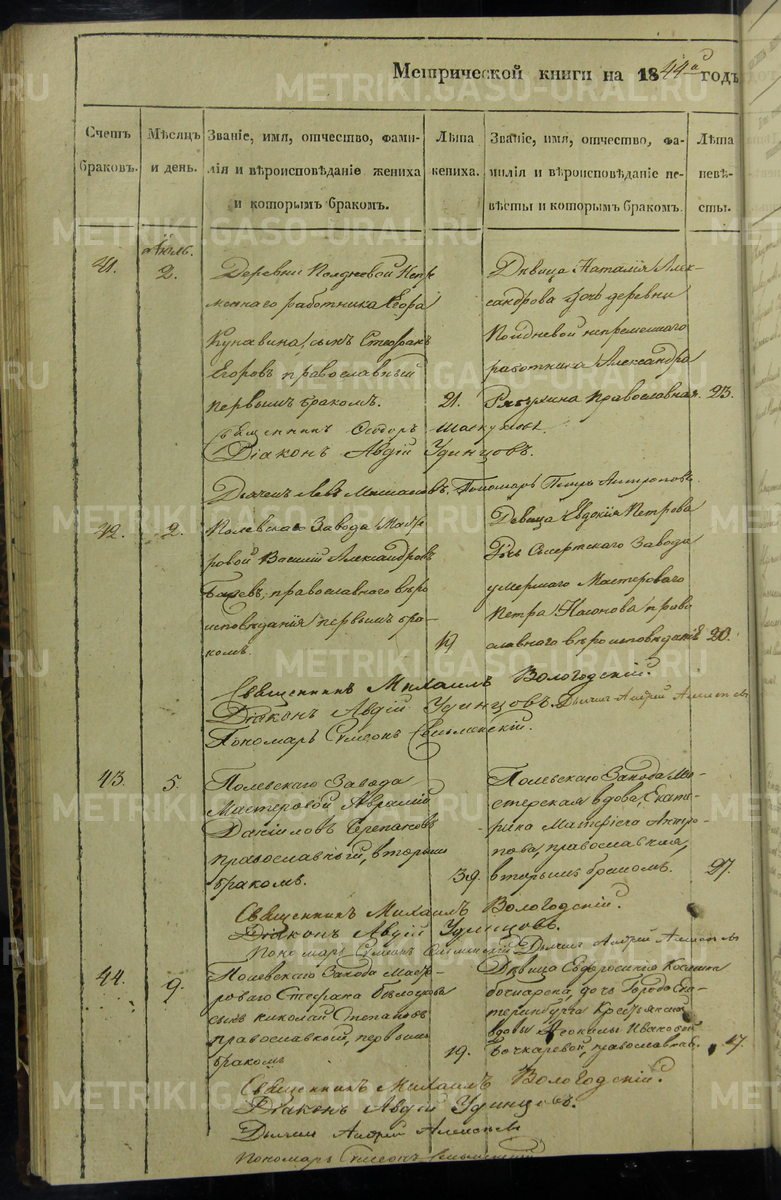 Метрической книги на 1844й годъ
Счетъ браковъ.
Мѣсяцъ и день.
Званіе, имя, отчество, фами-
лія и вѣроисповѣданіе жениха
и которымъ бракомъ.
Лѣта жениха.
Званіе, имя, отчество, фа-
милія и вѣроисповѣданіе не-
вѣсты и которымъ бракомъ.
Лѣта невѣ-
сты.
41.
2.
Деревни Полдневой Непре
меннаго работника Егора
Кунавина сынъ Стефанъ
Егоровъ православный
первымъ бракомъ.
21.
Дѣвица Наталія Алек-
сандрова дочь деревни
Полдневой непременнаго
работника Александра
православная.
23.
Священникъ
Діаконъ Авдій Удинцовъ.
Дьячекъ Левъ Пономарь Петръ
42.
2.
Полевскаго Завода Масте
ровой Василій Александровъ
православнаго вѣро
исповѣданія первымъ бра-
комъ.
19
Девица Евдокія Петрова
Дочь Сысертскаго Завода
умершаго Мастероваго
Петра право
славнаго вѣроисповѣданія
20.
Священникъ Михаилъ Вологодскій.
Діаконъ Авдій Удинцовъ. Дьячекъ Андрей
Пономарь Симеонъ
43.
5.
Полевскаго Завода
Мастеровой Аврамій
Даниловъ Черепановъ
православный, вторымъ
бракомъ.
39.
Полевскаго Завода Ма-
стерская вдова, Екате-
рина Матфіева Антро-
пова, православная,
вторымъ бракомъ.
27.
Священникъ Михаилъ Вологодскій.
Діаконъ Авдій Удинцовъ.
Пономарь Симеонъ Дьячекъ Андрей
44.
9.
Полевскаго Завода Масте-
роваго Стефана
сынъ Николай Степановъ
православный, первымъ
бракомъ
19.
Дѣвица Евфросинія Козмина
дочь Города Ека-
теринбурга
вдовы Ивановой
Бочкаревой, православная.
17.
Священникъ Михаилъ Вологодскій.
Діаконъ Авдій Удинцовъ.
Дьячекъ Андрей
Пономарь Симеонъ
METRIKI.GASO-URAL.RU